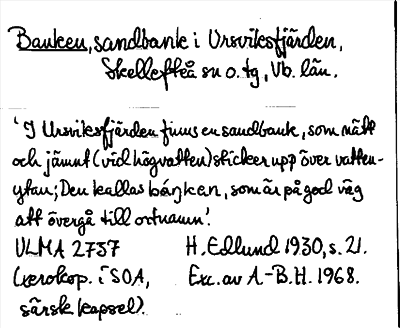 Banken, sandbank i Ursviksfjärden,
Skellefteå sn o. tg, Vb. län.
'I Ursviksfjärden finns en sandbank, som nätt
och jämnt (vid högvatten) sticker upp över vatten-
ytan; Den kallas báŋken, som är på god väg
att övergå till ortnamn'.
ULMA 2757 H. Edlund 1930, s. 21.
(xerokop. i SOA, Exc. av A.-B.H. 1968.
särsk kapsel).